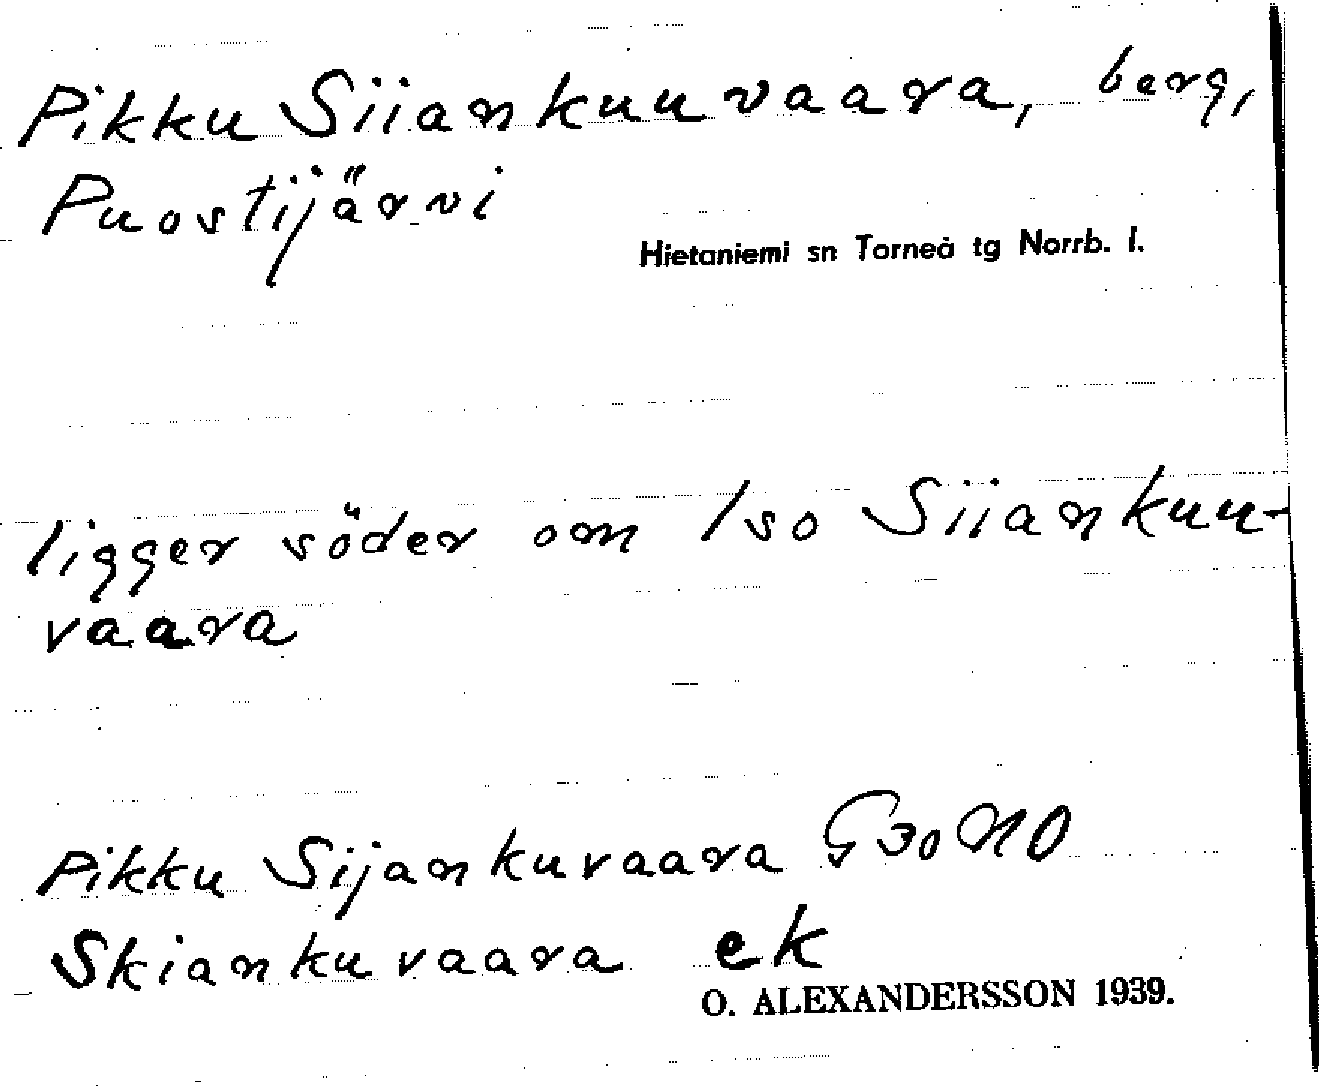 Pikku Siiankuuvaara, berg,
Puostijärvi
Hietaniemi sn Torneå tg Norrb. l.
ligger söder om Iso Siiankuu-
vaara
Pikku Sijankuvaara G 30 NO
Skiankuvaara ek
O. ALEXANDERSSON 1939.